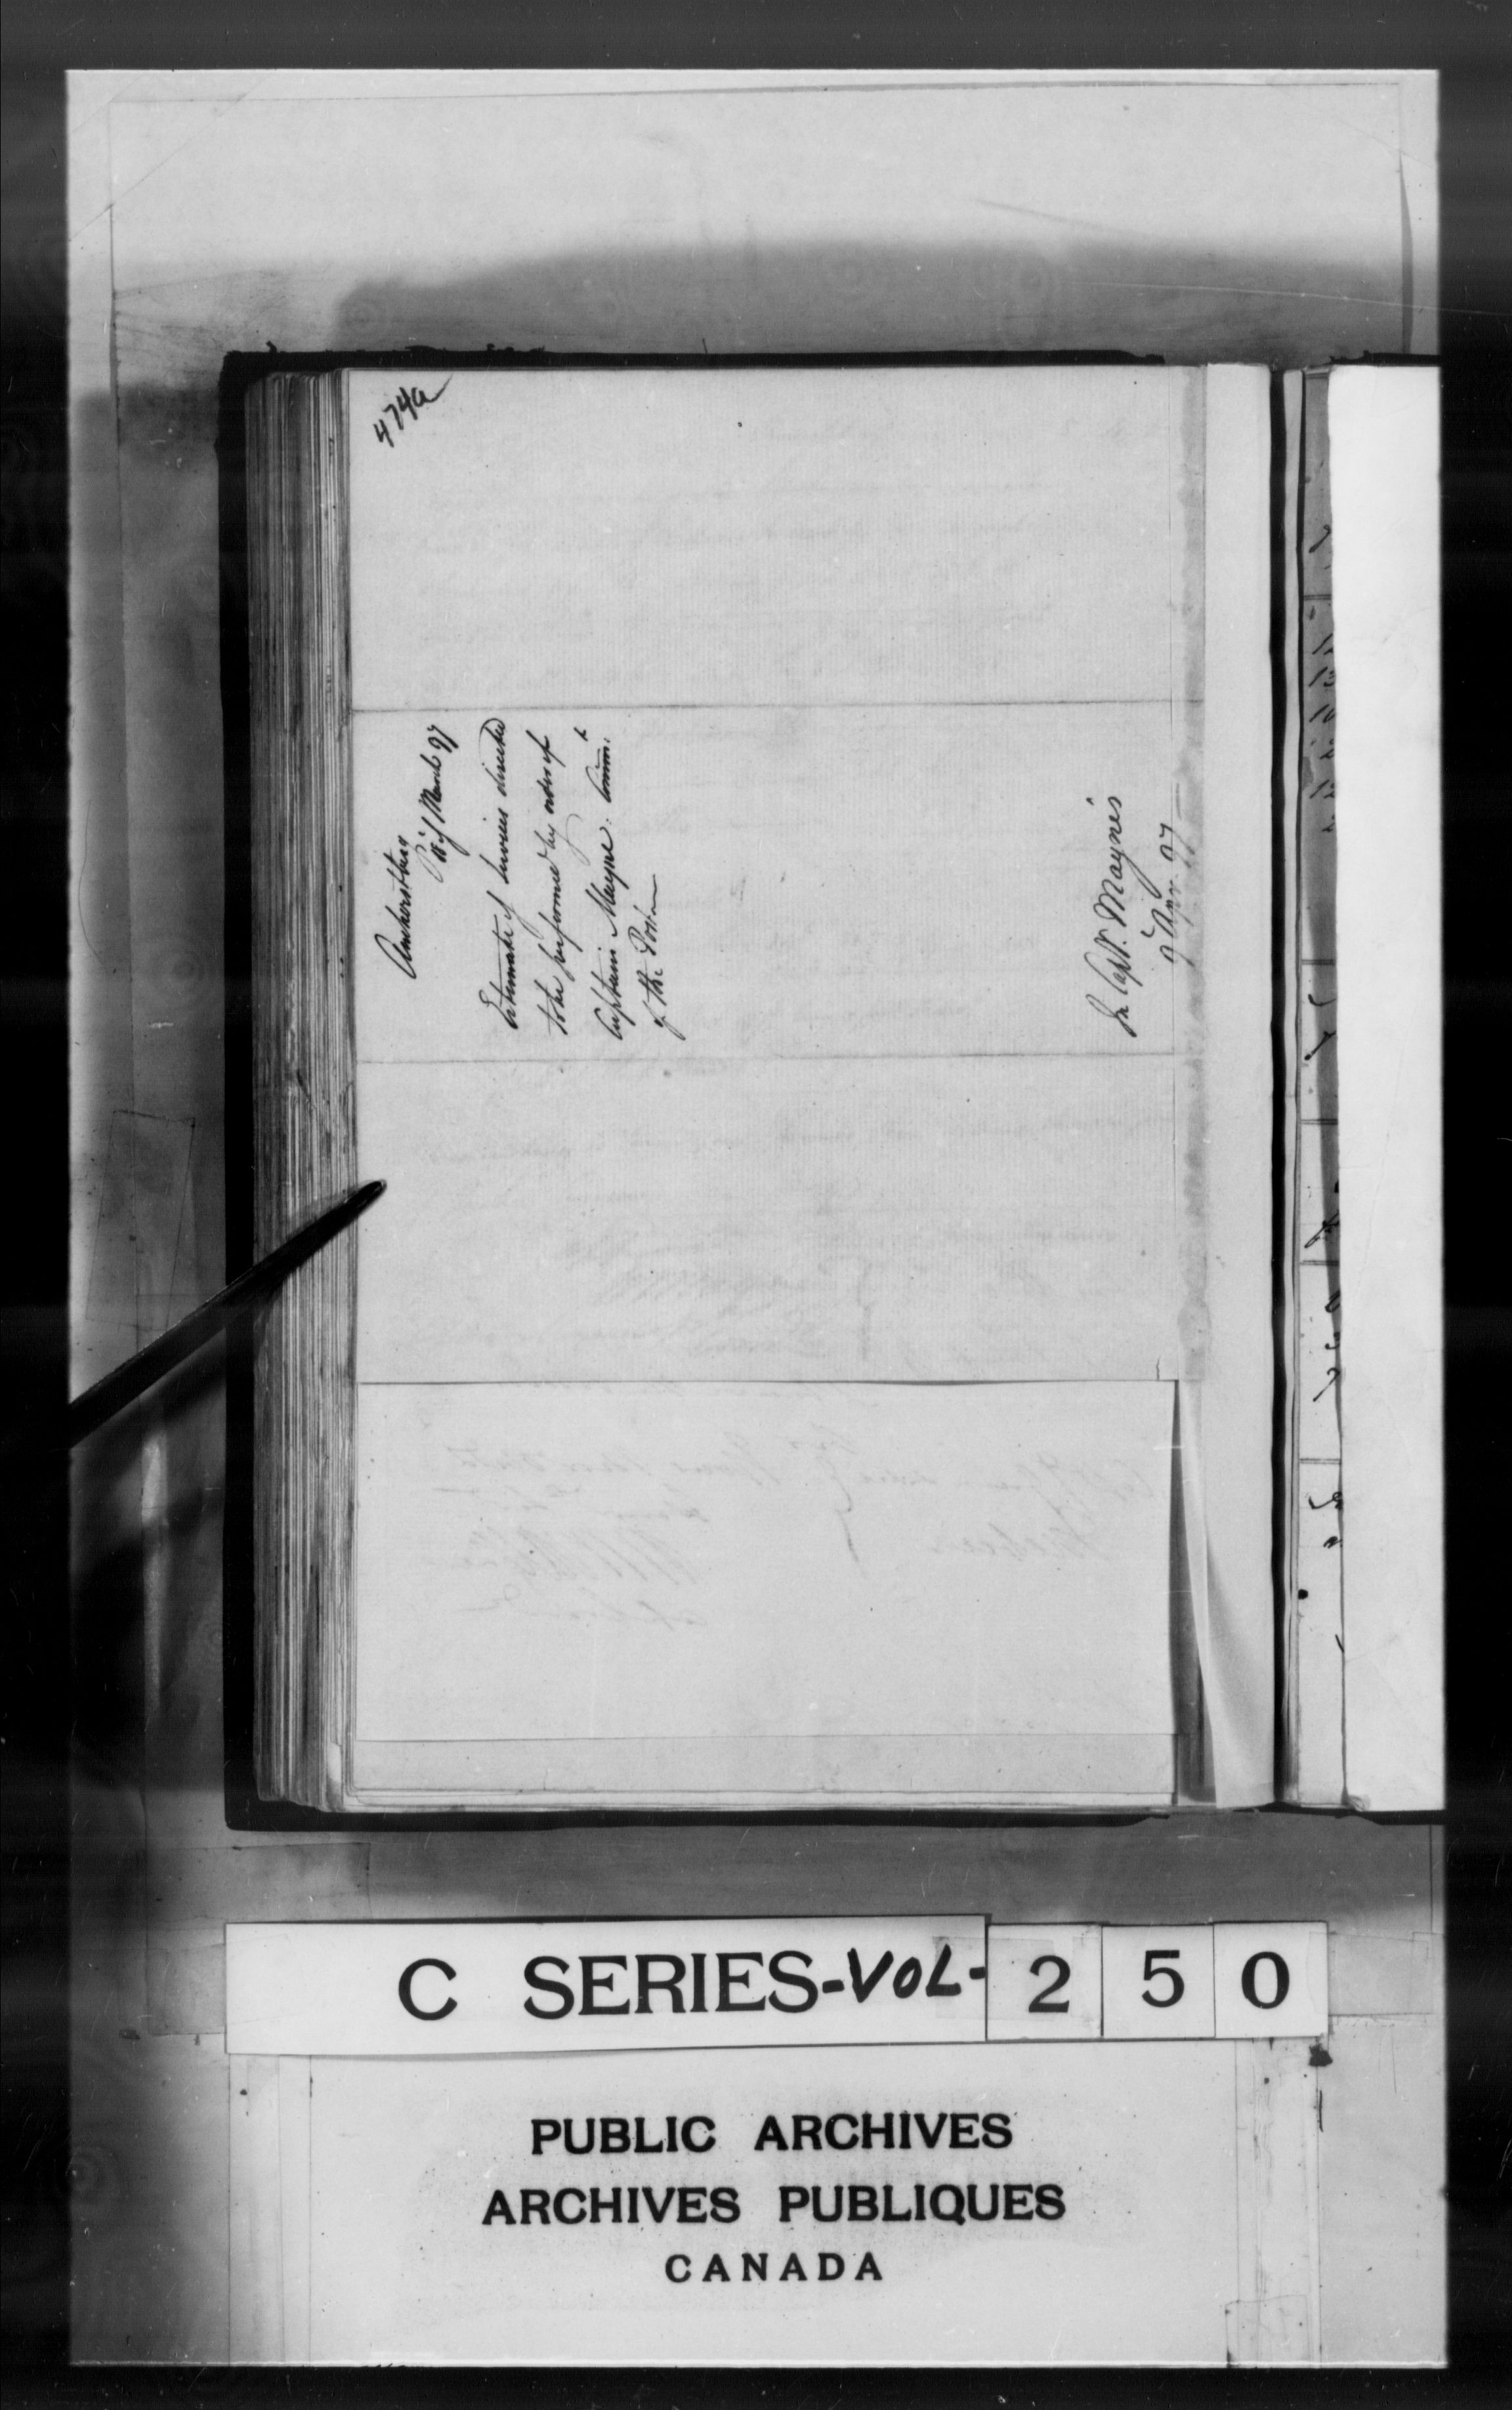 474a
Amherstburg
March 97
Estimate of Services directed
to be performed by order of
Captain Mayne. Comm.t
of the Post
In Capt. Mayne's
9 Apr. 97
C SERIES-VOL-250
PUBLIC ARCHIVES
ARCHIVES PUBLIQUES
CANADA